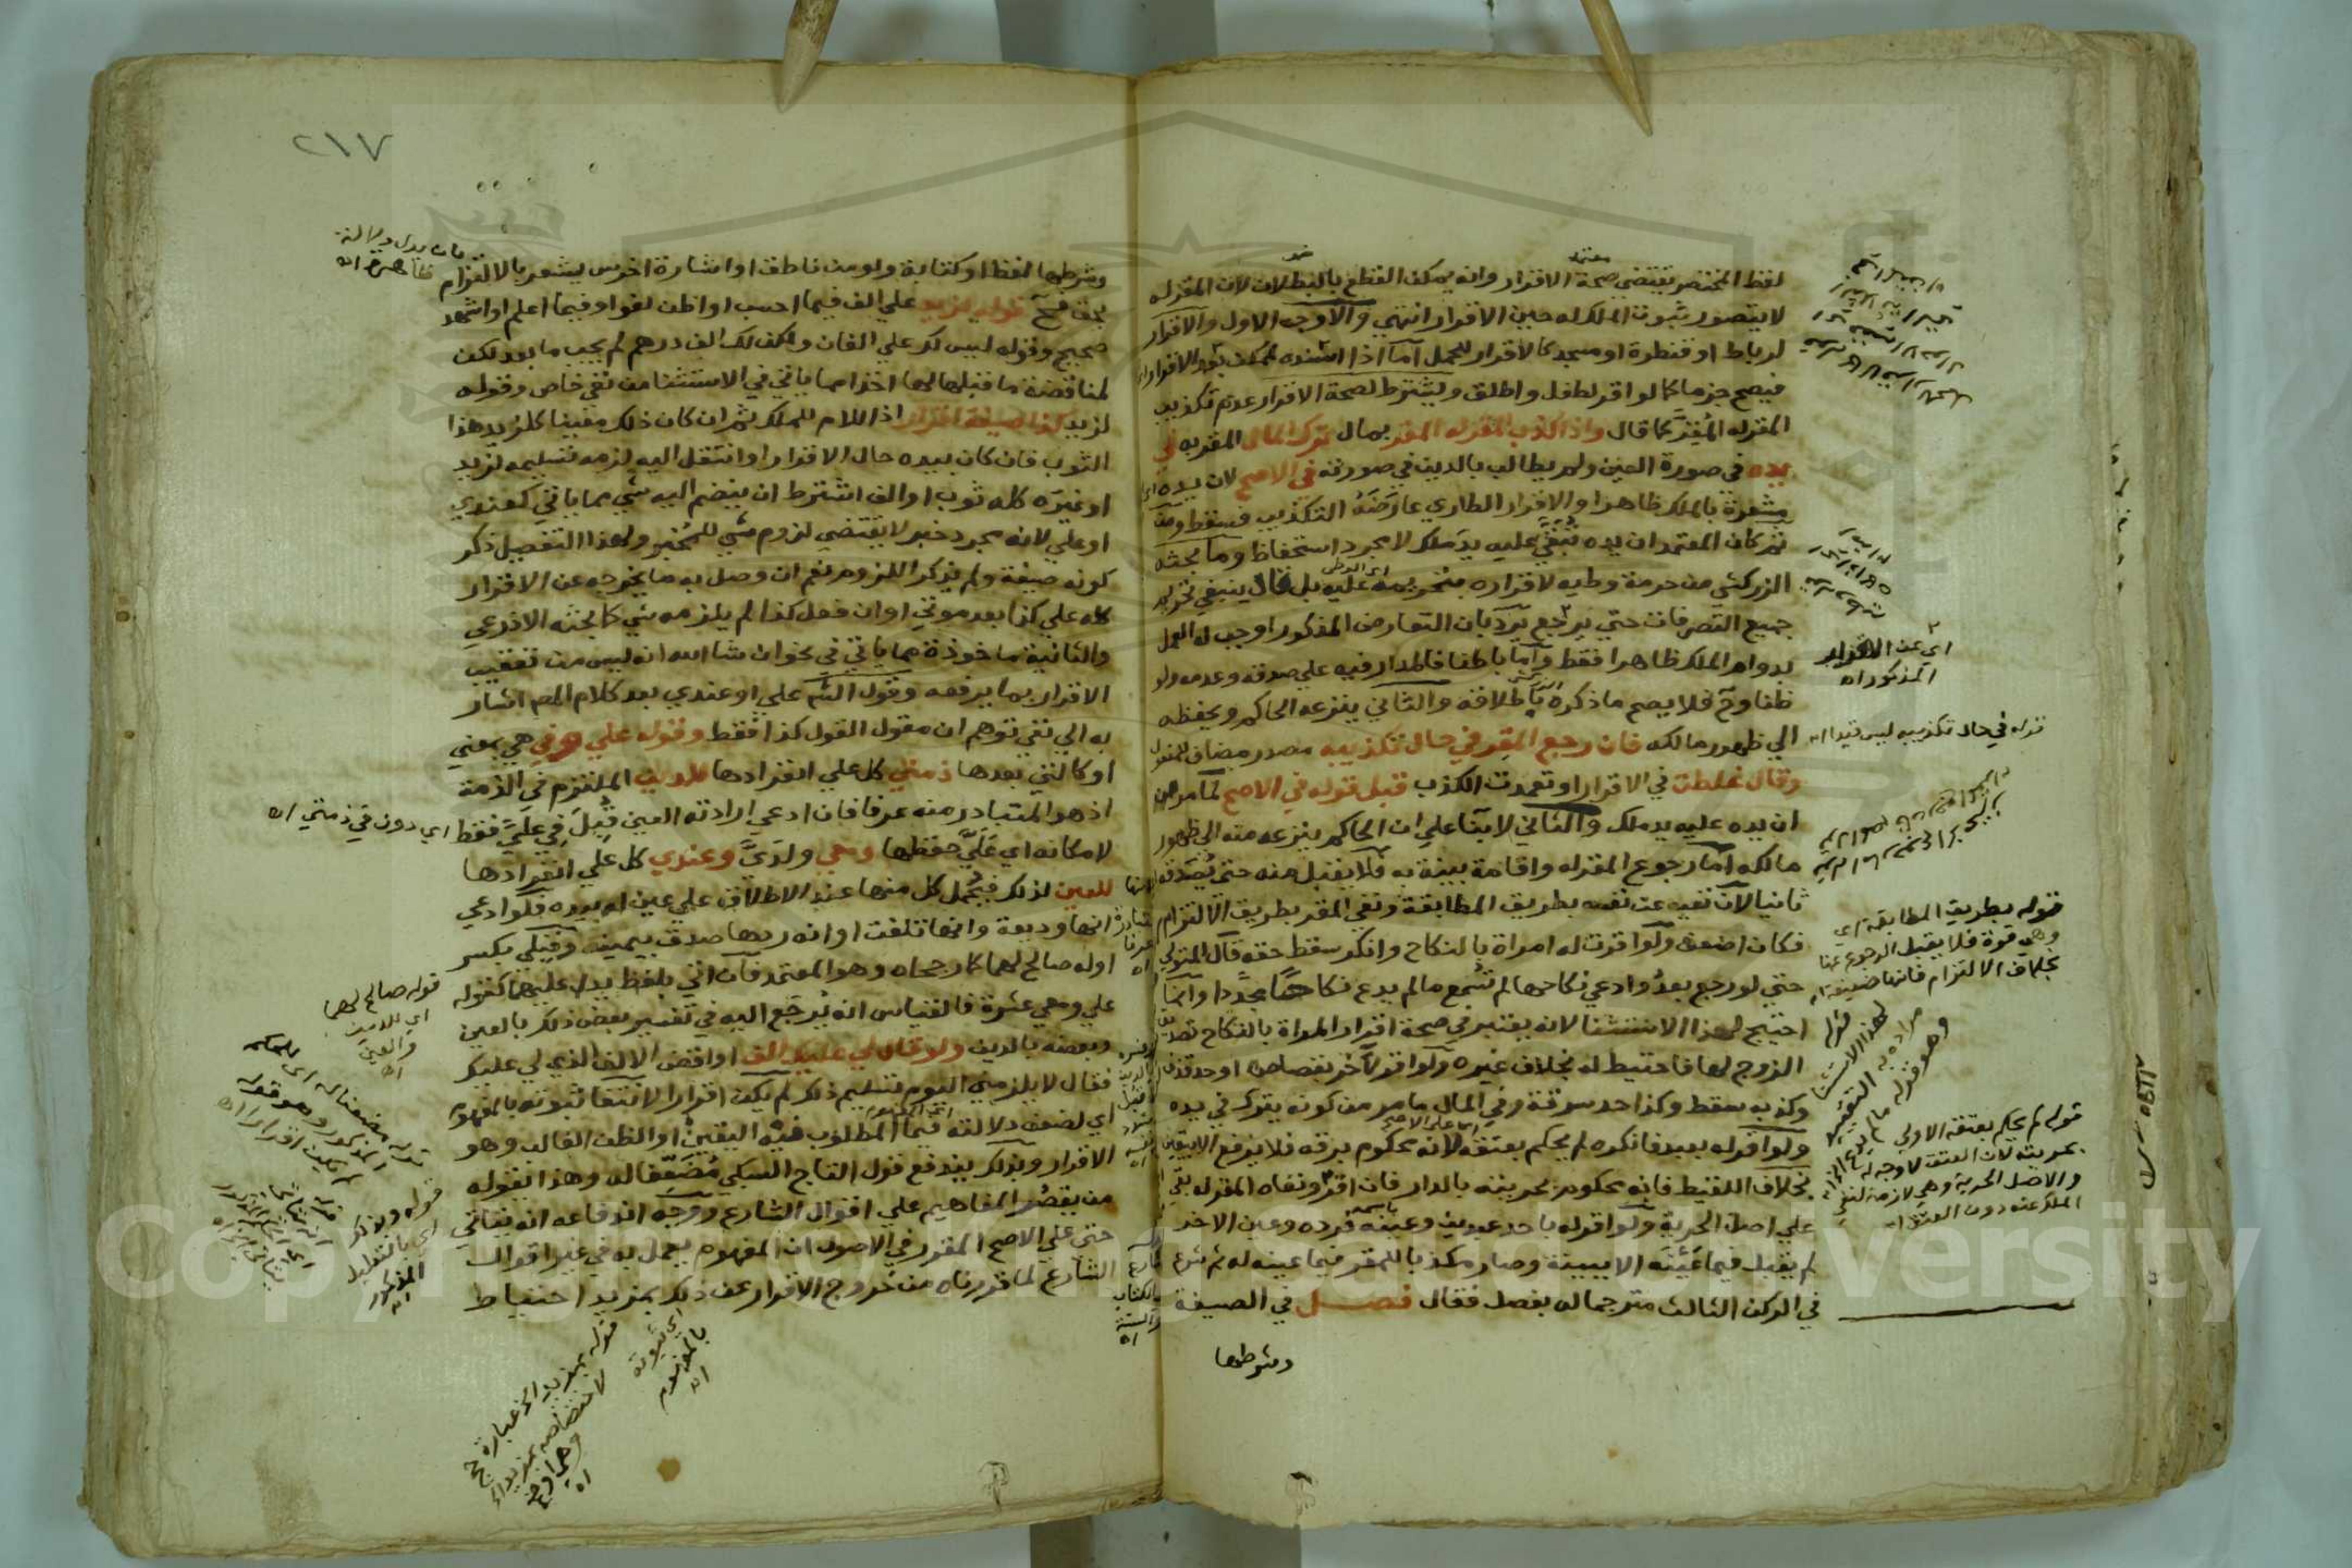 لفظ المختصر يقتضي صحة الاقرار وانه يمكن القطع بالبطلان لان المقر له
لا يتصور ثبوت الملك له حين الاقرار انتهي والاوجه الاول والاقرار
لرباط او قنطرة او مسجد كالاقرار للحمل اما اذا اسنده لممكن بعد الاقرار
فيصح جزما كما لو اقر لطفل واطلق ويشترط لصحة الاقرار عدم تكذيب
المقر له المقر كما قال واذا كذب المقر له المقر بمال ترك المال المقر به في
يده في صورة العين ولم يطالب بالدين في صورته في الاصح لان يده
مشعرة بالملك ظاهرا والاقرار الطاري عارضه التكذيب فسقط ومن
ثم كان المعتمد ان يده تبقي عليه يد ملك لا مجرد استحفاظ وما بحثه
الزركشي من حرمة وطيه لاقراره بتحريمه عليه بل قال ينبغي تحريم
جميع التصرفات حتي يرجع يرد بان التعارض المذكور اوجب له العمل
بدوام الملك ظاهرا فقط واما باطنا فالمدار فيه علي صدقه وعدمه ولو
ظنا وح فلا يصح ما ذكره باطلاقه والثاني ينزعه الحاكم ويحفظه
الي ظهور مالكه فان رجع المقر في حال تكذيبه مصدر مضاف للمفعول
وقال غلطت في الاقرار او تعمدت الكذب قبل قوله في الاصح لما مر من
ان يده عليه يد ملك والثاني لا بنا علي ان الحاكم ينزعه منه الي ظهور
مالكه اما رجوع المقر له واقامة بينة به فلا يقبل منه حتي يصدقه
ثانيا لان نفيه عن نفسه بطريق المطابقة ونفي المقر بطريق الالتزام
فكان اضعف ولو اقرت له امراة بالنكاح وانكر سقط حقه قال المتولي
حتي لو رجع بعد وادعي نكاحها لم تسمع ما لم يدع نكاحا مجددا وانما
احتيج لهذا الاستثنا لانه يعتبر في صحة اقرار المراة بالنكاح تصديق
الزوج لها فاحتيط له بخلاف غيره ولو اقر لآخر بقصاص او حد قذف
وكذبه سقط وكذا حد سرقة وفي المال ما مر من كونه يترك في يده
ولو اقر له بعبد فانكره لم يحكم بعتقه لانه محكوم برقه فلا يرفع الا بيقين
بخلاف اللقيط فانه محكوم بحريته بالدار فان اقر ونفاه المقر له بقي
علي اصل الحرية ولو اقر له باحد عبدين وعينه فرده وعين الاخر
لم يقبل فيما عينه الا ببينة وصار مكذبا للمقر فيما عينه له ثم شرع
في الركن الثالث مترجما له بفصل فقال فصل في الصيغة
وشرطها
اي عن الاقرار
المذكور اه
قوله في حال تكذيبه ليس قيدا اه
قوله بطريق المطابقة اي
وهي قوة فلا يقبل الرجوع عنها
بخلاف الالتزام فانها ضعيفة اه
قوله لهذا الاستثنا
مراده به التقييد
وهو قوله ما لم يدع الخ اه
قوله لم يحكم بعتقه الاولي
بحريته لان العتق لا وجه له
والاصل الحرية وهي لازمة لنفي
الملك عنه دون العتق اه
٢١٧
وشرطها لفظ او كتابة ولو من ناطق او اشارة اخرس يشعر بالالتزام
بحق فح قوله لزيد علي الف فيما احسب او اظن لغو او فيما اعلم او اشهد
صحيح وقوله ليس لك علي الفان ولكن لك الف درهم لم يجب ما بعد لكن
لمناقضة ما قبلها لها اخذا مما ياتي في الاستثنا من نفي خاص وقوله
لزيد كذا صيغة اقرار اذ اللام للملك ثم ان كان ذلك معينا كلزيد هذا
الثوب فان كان بيده حال الاقرار او انتقل اليه لزمه تسليمه لزيد
او غيره كله ثوب او الف اشترط ان ينضم اليه شي مما ياتي كعندي
او علي لانه مجرد خبر لا يقتضي لزوم شي للمخبر ولهذا التفصيل ذكر
كونه صيغة ولم يذكر اللزوم نعم ان وصل به ما يخرجه عن الاقرار
كله علي كذا بعد موتي او ان فعل كذا لم يلزمه شي كما بحثه الاذرعي
والثانية ماخوذة مما ياتي في نحو ان شا الله انه ليس من تعقيب
الاقرار بما يرفعه وقول الش علي او عندي بعد كلام المص اشار
به الي نفي توهم ان مقول القول كذا فقط وقوله علي وفي هي بمعني
او كالتي بعدها ذمتي كل علي انفرادها للدين الملتزم في الذمة
اذ هو المتبادر منه عرفا فان ادعي ارادته العين قبل في علي فقط
لامكانه اي علي حفظها ومعي ولدي وعندي كل علي انفرادها
للعين لذلك فيحمل كل منها عند الاطلاق علي عين له بيده فلو ادعي
انها وديعة وانها تلفت او انه ردها صدق بيمينه وقبلي بكسر
اوله صالح لهما كما رجحاه وهو المعتمد فان اتي بلفظ يدل عليهما كقوله
علي ومعي عشرة فالقياس انه يرجع اليه في تفسير بعض ذلك بالعين
وبعضه بالدين ولو قال لي عليك الف او اقض الالف الذي لي عليك
فقال لا يلزمني اليوم تسليم ذلك لم يكن اقرارا لانتفا ثبوته بالمفهوم
اي لضعف دلالته فيما المطلوب فيه اليقين او الظن الغالب وهو
الاقرار وبذلك يندفع قول التاج السبكي مضعفا له وهذا يقوله
من يقصر المفاهيم علي اقوال الشارع ووجه اندفاعه انه يتاتي
حتي علي الاصح المقرر في الاصول ان المفهوم يعمل به في غير اقوال
الشارع لما قررناه من خروج الاقرار عن ذلك بمزيد احتياط
اي دون في ذمتي اه
قوله صالح لهما
اي للدين
والعين
اه
قوله وبذلك
اي بالتعليل
المذكور
اه
اي ثبوته
بالمفهوم
اه